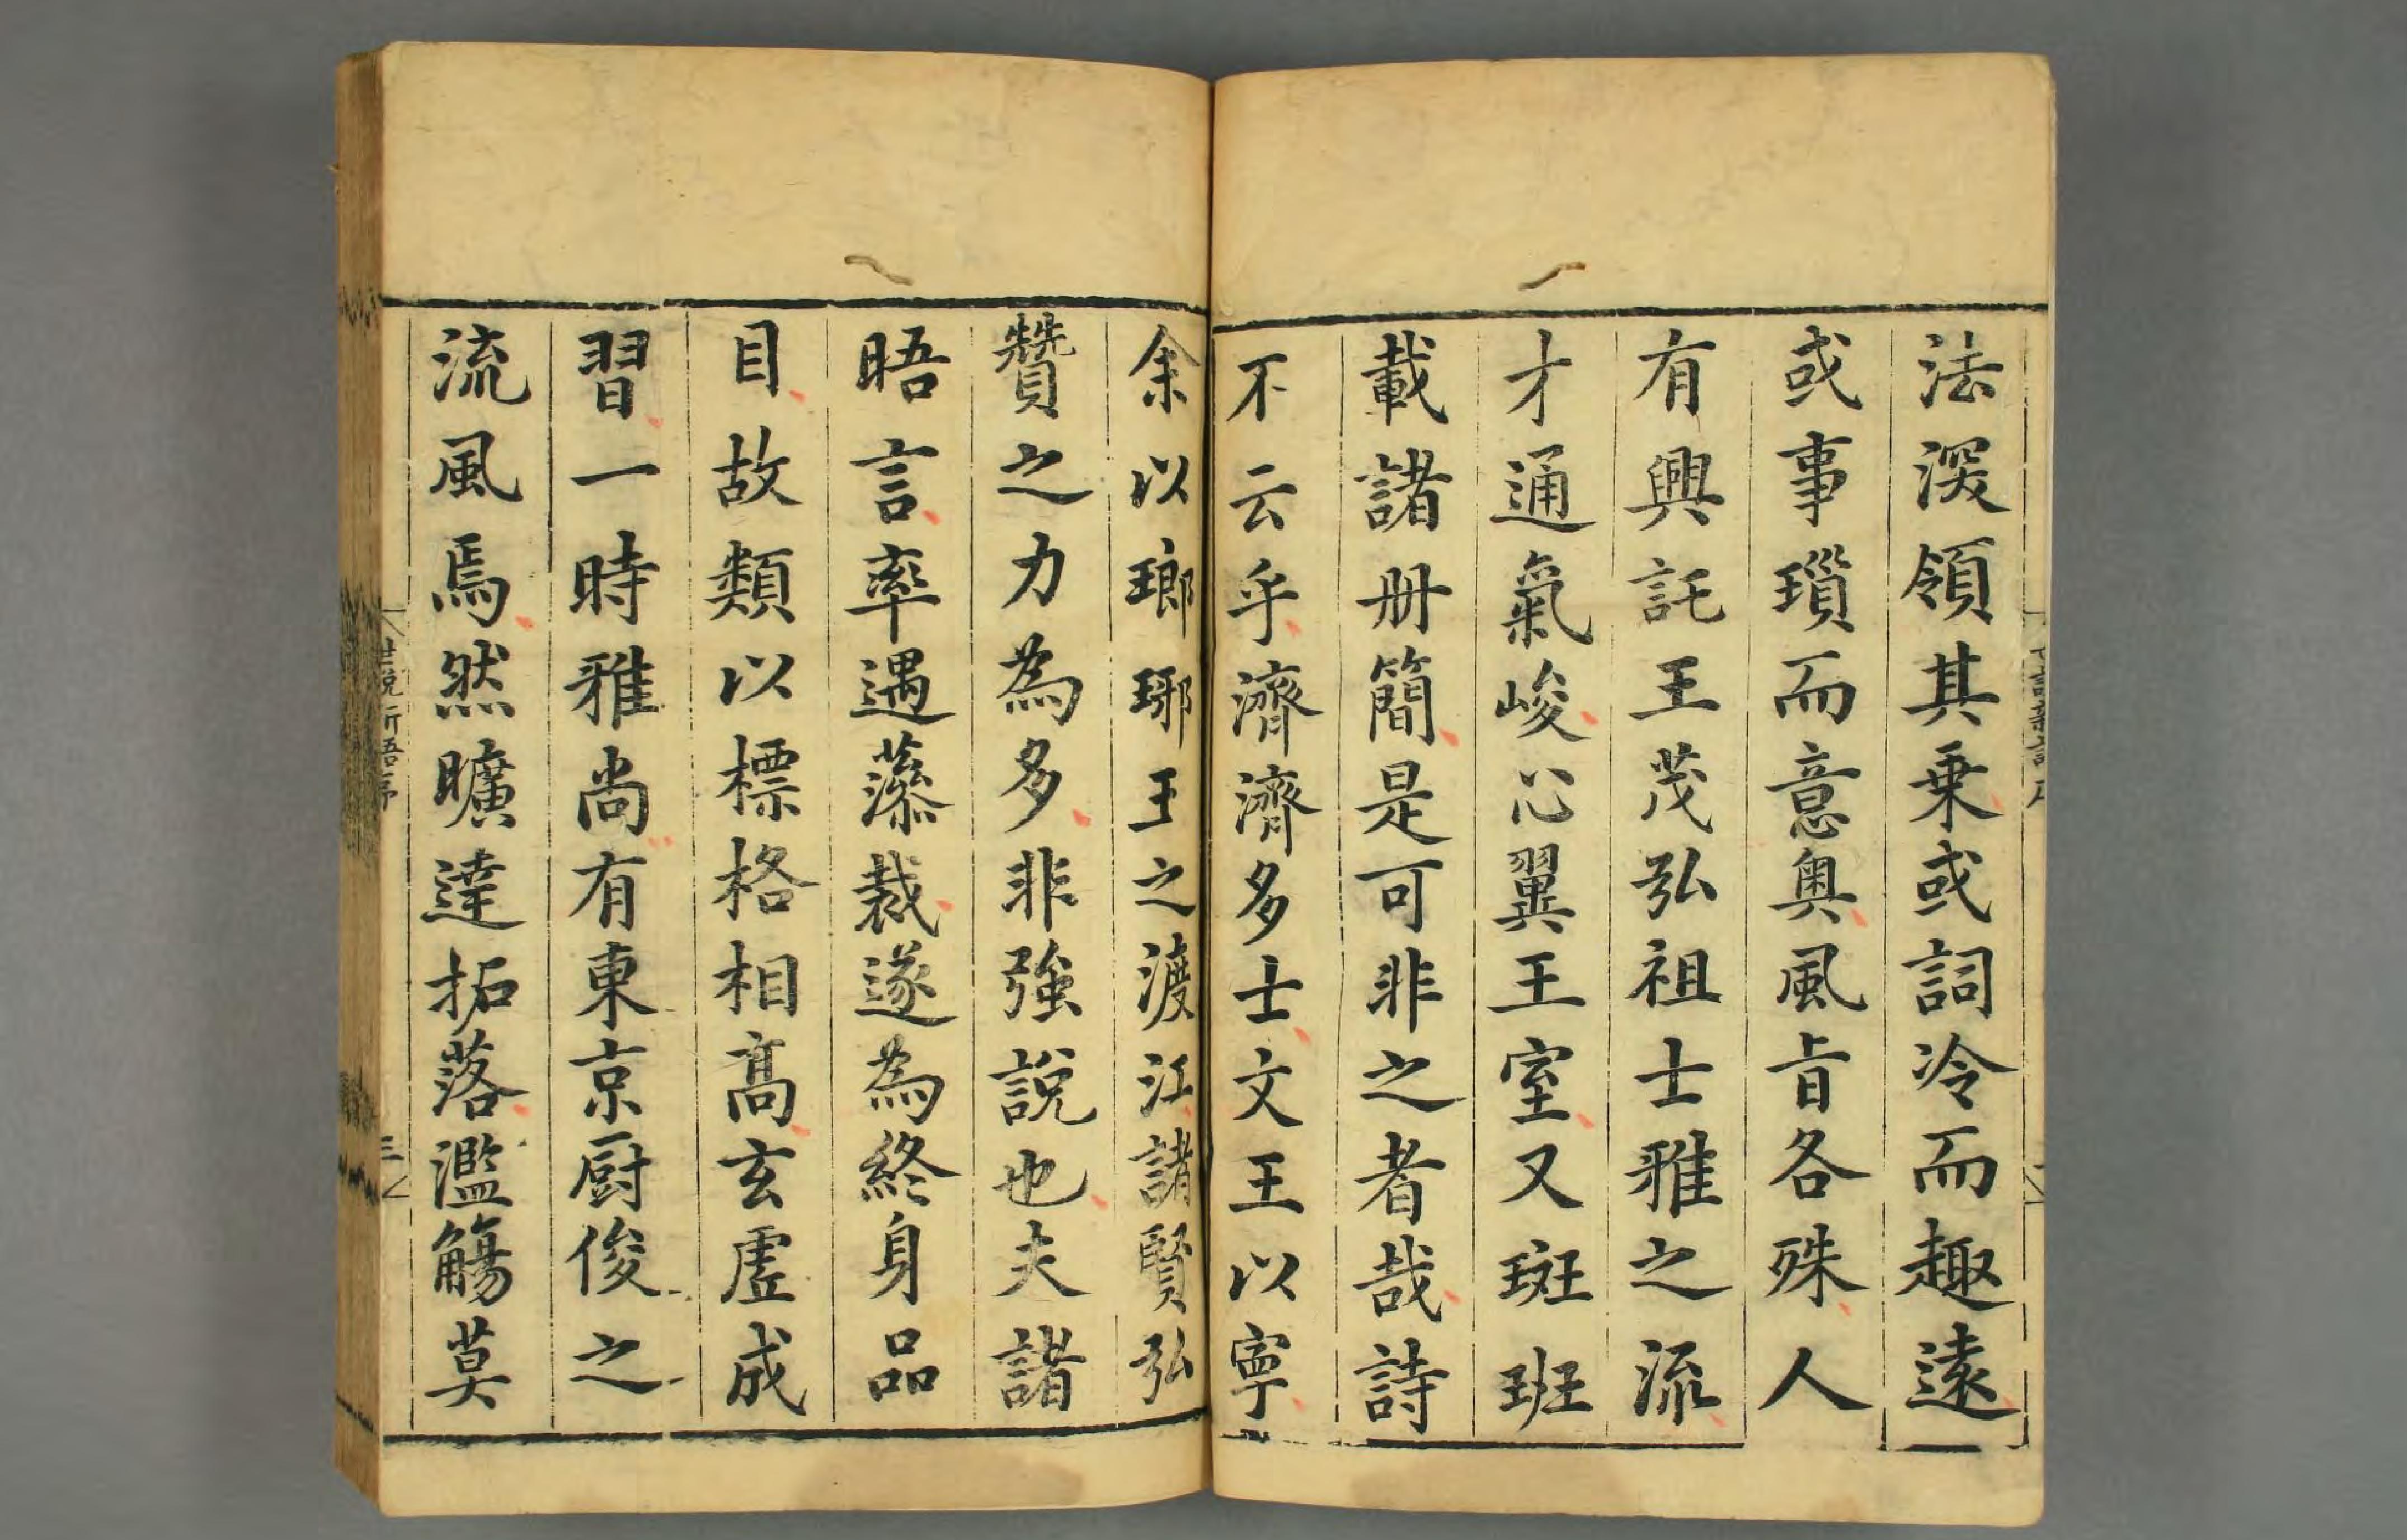 法深領其乗或詞冷而趣遠
或事瑣而意奥風旨各殊人
有興託王茂弘祖士雅之流
才通氣峻心翼王室又斑斑
載諸册簡是可非之者哉詩
不云乎濟濟多士文王以寧
余以瑯琊王之渡江諸賢弘
贊之力為多非強說也夫諸
晤言率遇藻裁遂為終身品
目故類以標格相高玄虛成
習一時雅尚有東京厨俊之
流風焉然曠達拓落濫觴莫
世說新語序
三